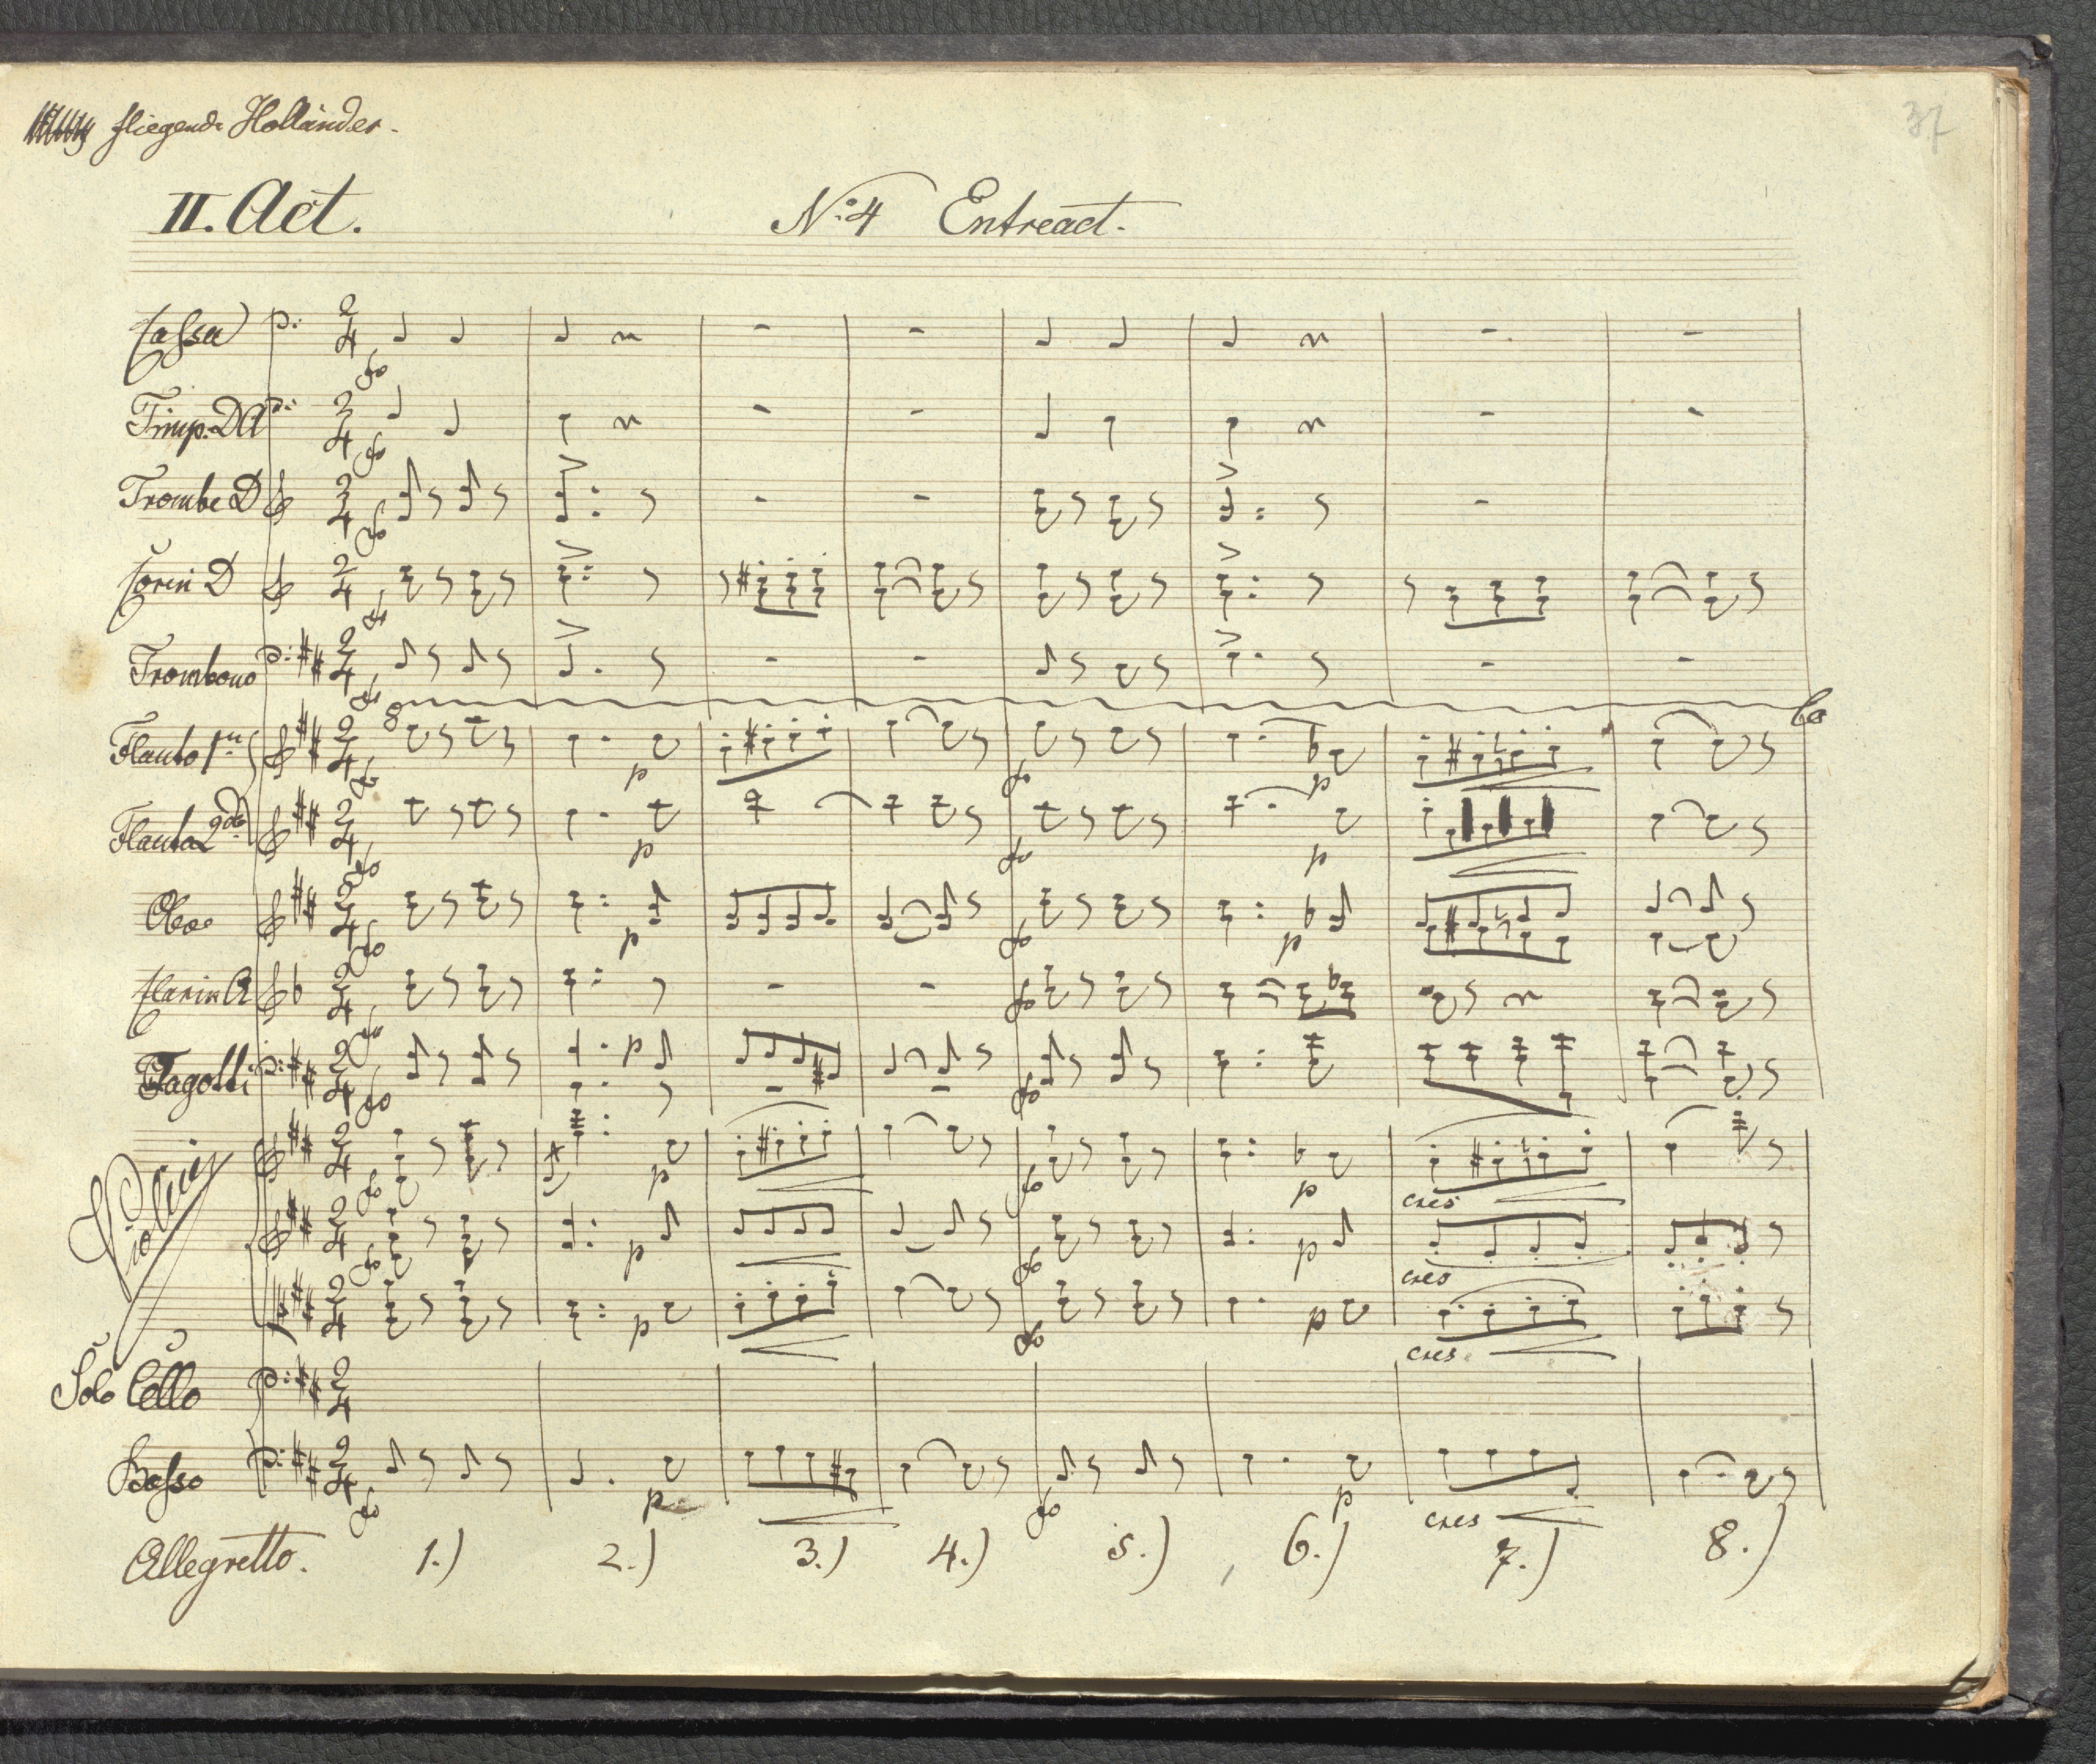 fliegende Holländer.
37
II. Act.
No. 4 Entreact.
Cassa
Timp. DA
Trombe D
Corni D
Trombono
8
Flauto 1mo
Flauto 2do
Oboe
Clarin A
Fagotti
Violini
cres
cres
cres
Solo Cello
Basso
cres
Allegretto. 1.) 2.) 3.) 4.) 5.) 6.) 7.) 8.)